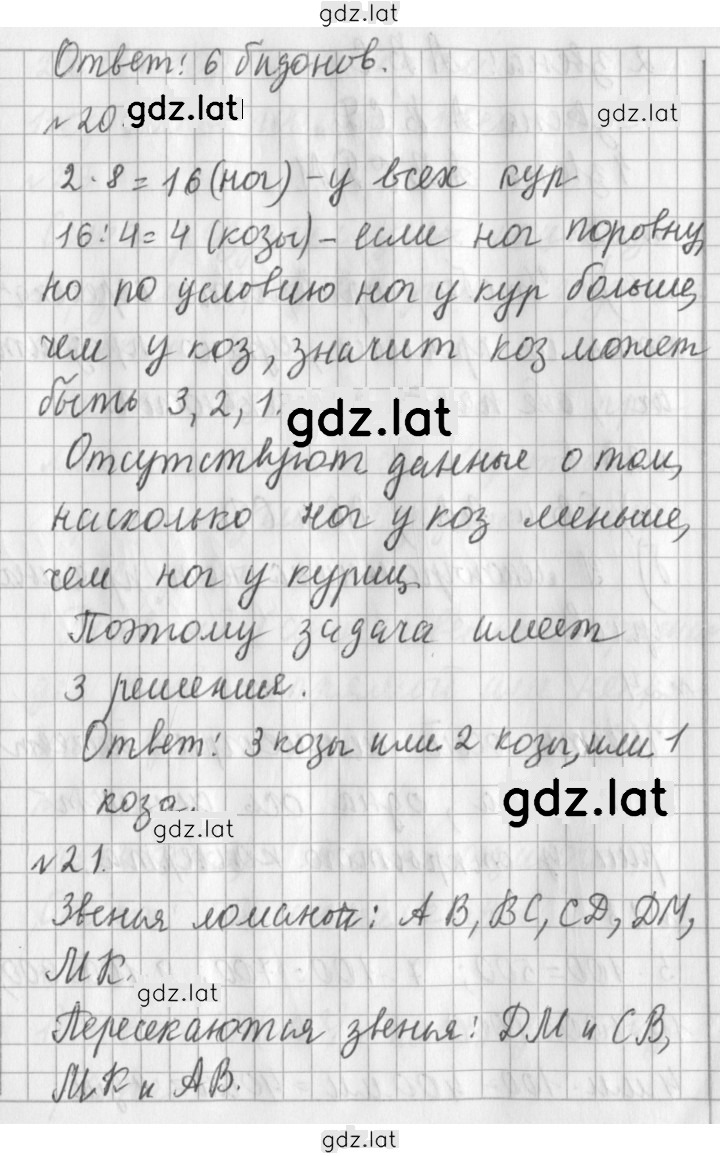 gdz.lat
Ответ: 6 бизонов.
№20. gdz.lat gdz.lat
2·8=16(ног) – у всех кур
16:4=4 (козы) – если ног поровну,
но по условию ног у кур больше,
чем у коз, значит коз может
быть 3, 2, 1.
gdz.lat
Отсутствуют данные о том,
насколько ног у коз меньше,
чем ног у куриц.
Поэтому задача имеет
3 решения.
Ответ: 3 козы или 2 козы, или 1
коза.
gdz.lat
gdz.lat
№21.
Звенья ломаной: AB, BC, CD, DM,
MK.
gdz.lat
Пересекаются звенья: DM и CB,
MK и AB.
gdz.lat